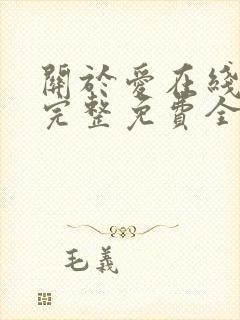 關於愛在綫
完整免費全
毛義